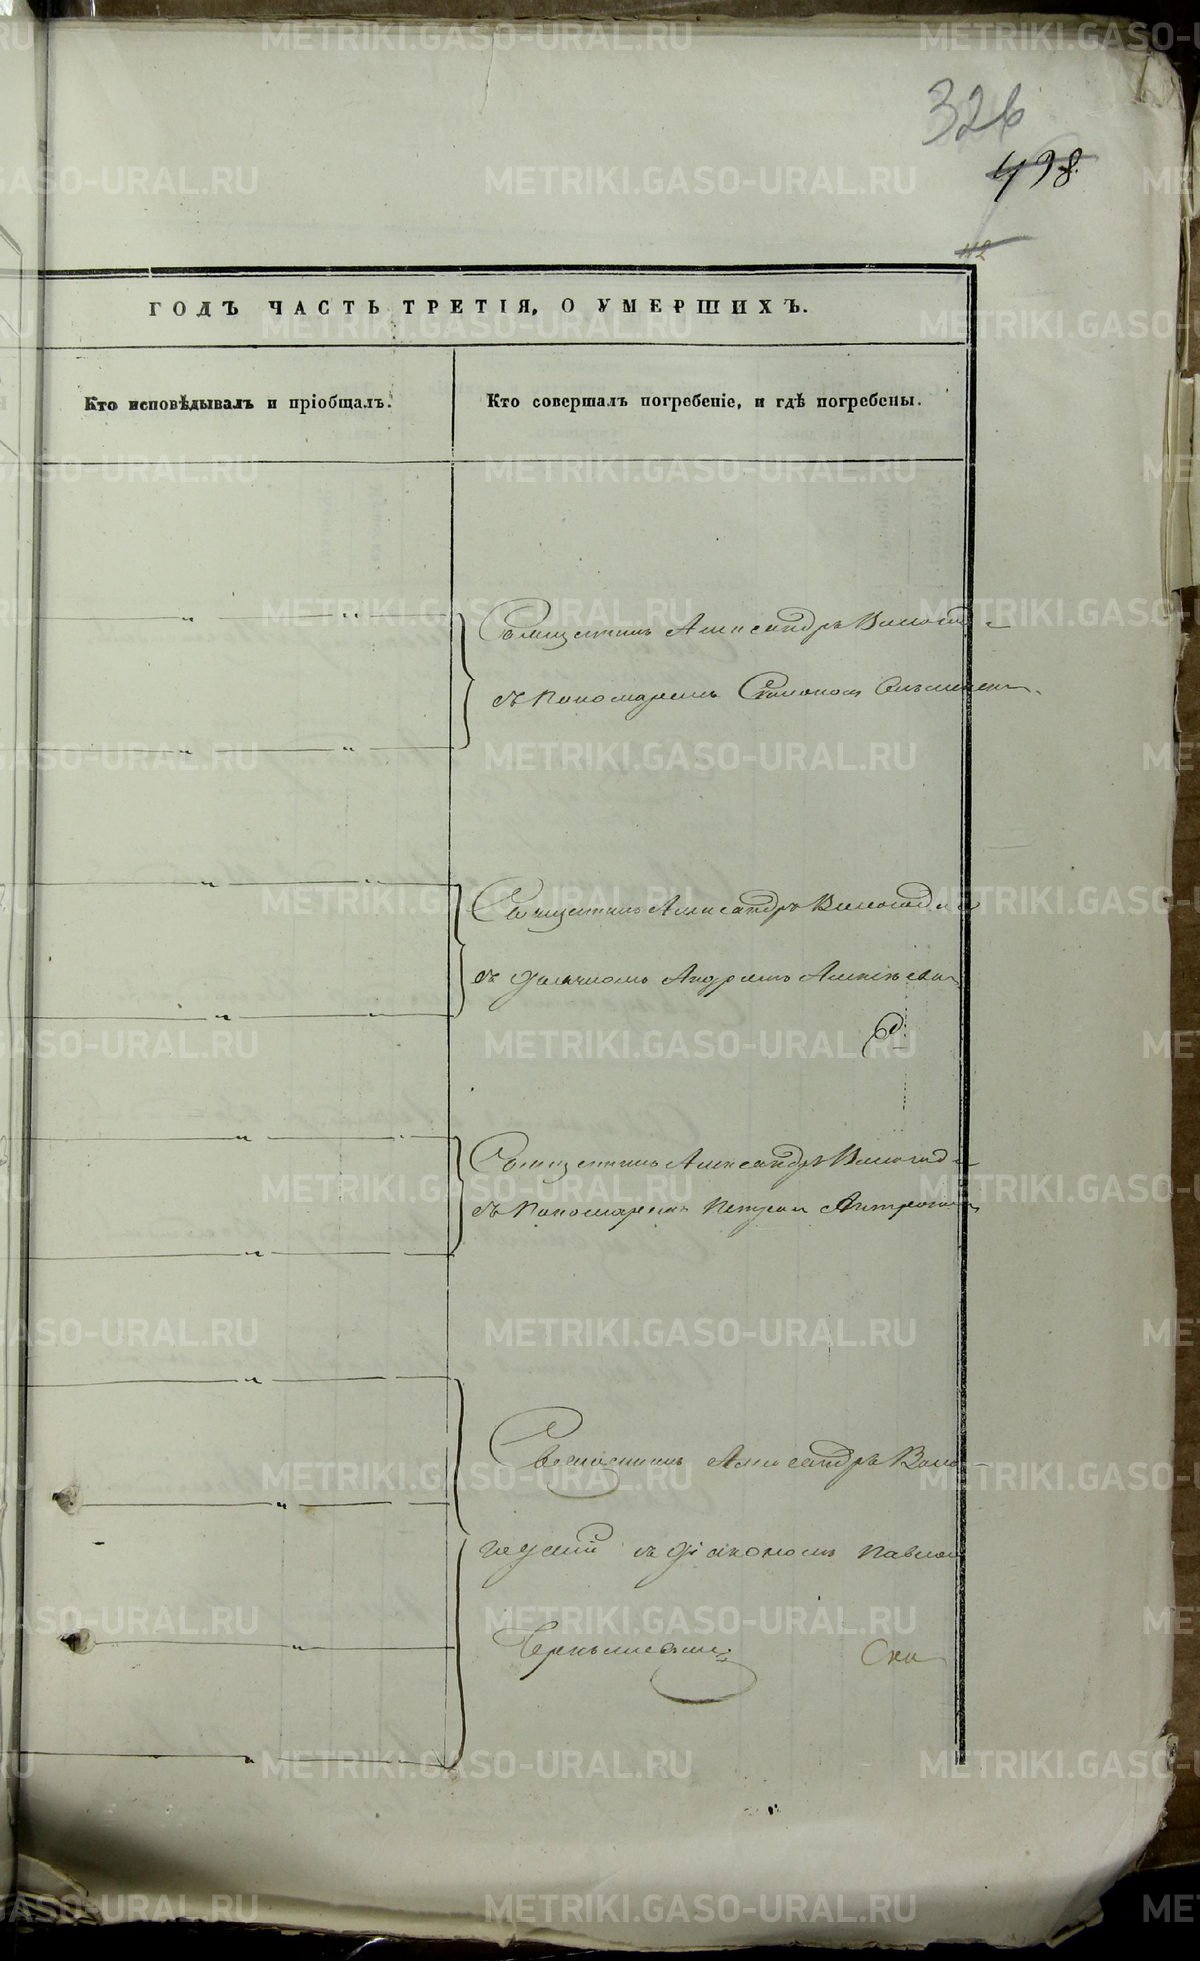 326
498
112
ГОДЪ ЧАСТЬ ТРЕТІЯ, О УМЕРШИХЪ.
Кто исповѣдывалъ и пріобщалъ.
Кто совершалъ погребеніе, и гдѣ погребены.
Священникъ Александръ Вологод-
съ Пономаремъ Симономъ
Священникъ Александръ Вологодск
съ дьячкомъ Андреемъ Алексѣевы
Священникъ Александръ Вологод-
съ Пономаремъ Петромъ
Священникъ Александръ Воло-
годскій съ Діакономъ Павлом
METRIKI.GASO-URAL.RU